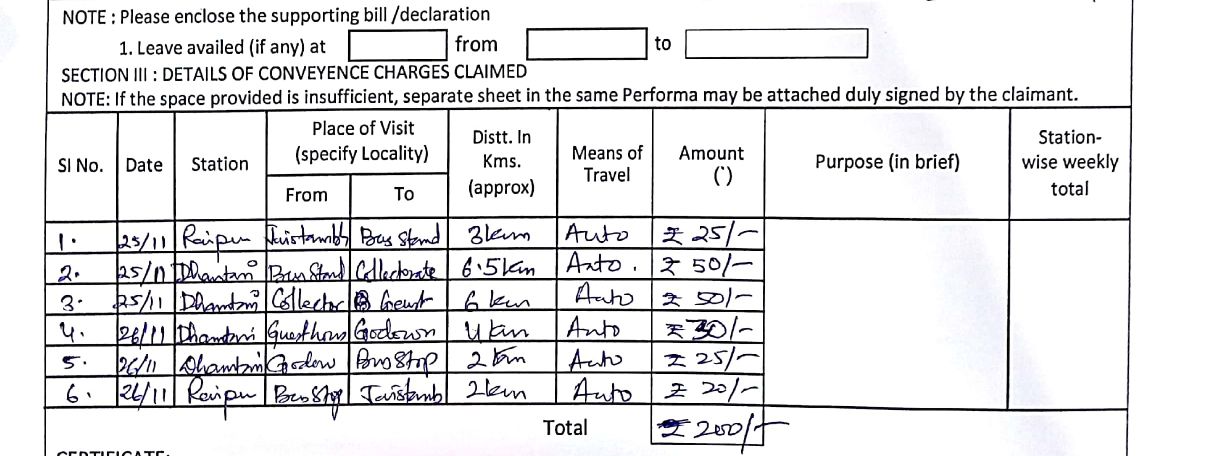 NOTE : Please enclose the supporting bill /declaration
1. Leave availed (if any) at from to
SECTION III : DETAILS OF CONVEYENCE CHARGES CLAIMED
NOTE: If the space provided is insufficient, separate sheet in the same Performa may be attached duly signed by the claimant.
Sl No. Date Station Place of Visit (specify Locality) From To Distt. In Kms. (approx) Means of Travel Amount (`) Purpose (in brief) Station-wise weekly total
1. 25/11 Raipur Jaistambh Bus Stand 3km Auto ₹ 25/-
2. 25/11 Dhamtari Bus Stand Collectorate 6.5km Auto. ₹ 50/-
3. 25/11 Dhamtari Collector 6 km Auto ₹ 50/-
4. 26/11 Dhamtari Guesthous Godown 4 km Auto ₹ 30/-
5. 26/11 Dhamtari Godow Bus Stop 2 km Auto ₹ 25/-
6. 26/11 Raipur Bus Stop Jaistamb 2km Auto ₹ 20/-
Total ₹ 200/-
CERTIFICATE: